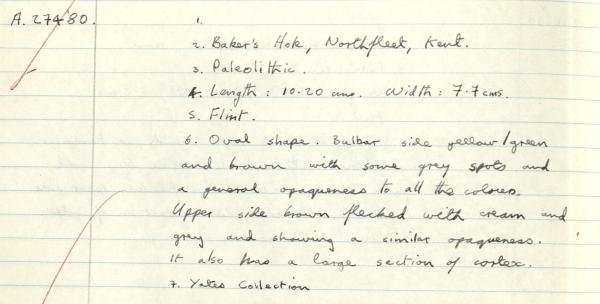 A. 27480.
1.
2. Baker's Hole, Northfleet, Kent.
3. Paleolithic.
4. Length: 10.20 cms. Width: 7.7 cms.
5. Flint.
6. Oval shape. Bulbar side yellow/green
and brown with some grey spots and
a general opaqueness to all the colours.
Upper side brown flecked with cream and
grey and showing a similar opaqueness.
It also has a large section of cortex.
7. Yates Collection